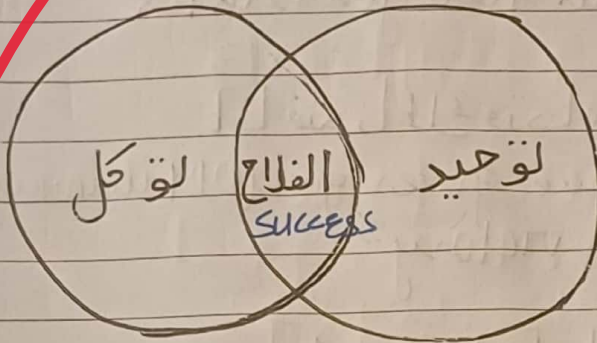 توحيد
الفلاح
success
توكل